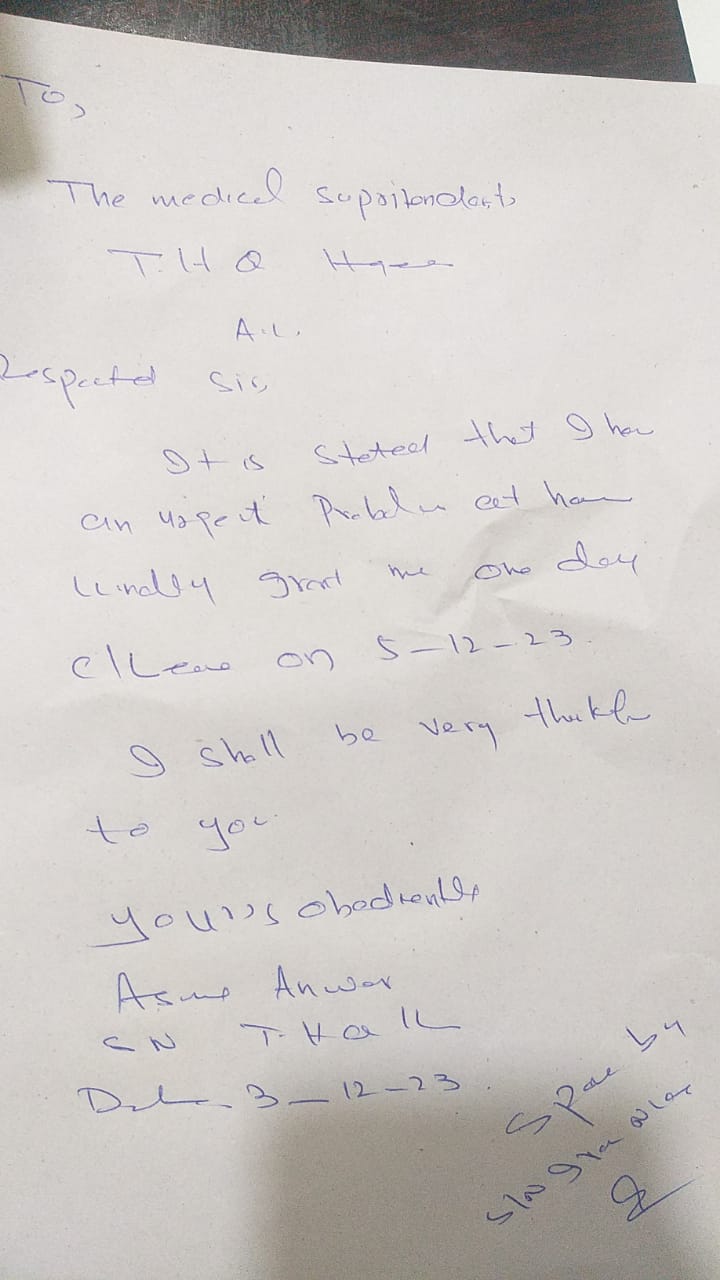 To,
The medical Supritendent
T.H Q
A.C.
Respected Sir,
It is Stated that I have
an urgent Problem at home
kindly grant me one day
C/Leave on 5-12-23.
I shall be very thankful
to you
yours obediently
Anwar
CN T.H Q
Date 3-12-23.
by